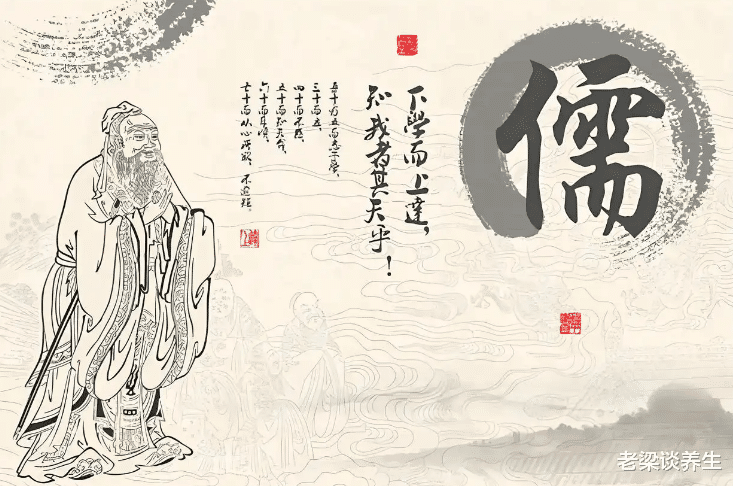 儒
下學而上達，
知我者其天乎！
吾十有五而志于學，
三十而立，
四十而不惑，
五十而知天命，
六十而耳順，
七十而从心所欲，不逾矩。
老梁谈养生